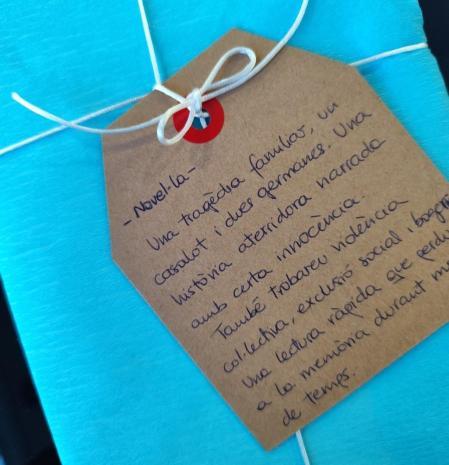 - Novel·la -
Una tragèdia familiar, un
casalot i dues germanes. Una
història aterridora narrada
amb certa innocència.
També trobareu violència
col·lectiva, exclusió social i
Una lectura ràpida que
a la memòria durant
de temps.